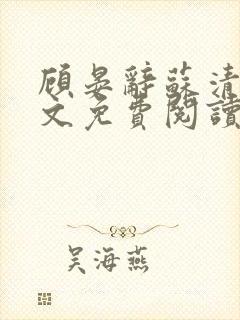 顾晏辭蘇清
文免費閱讀
吴海燕